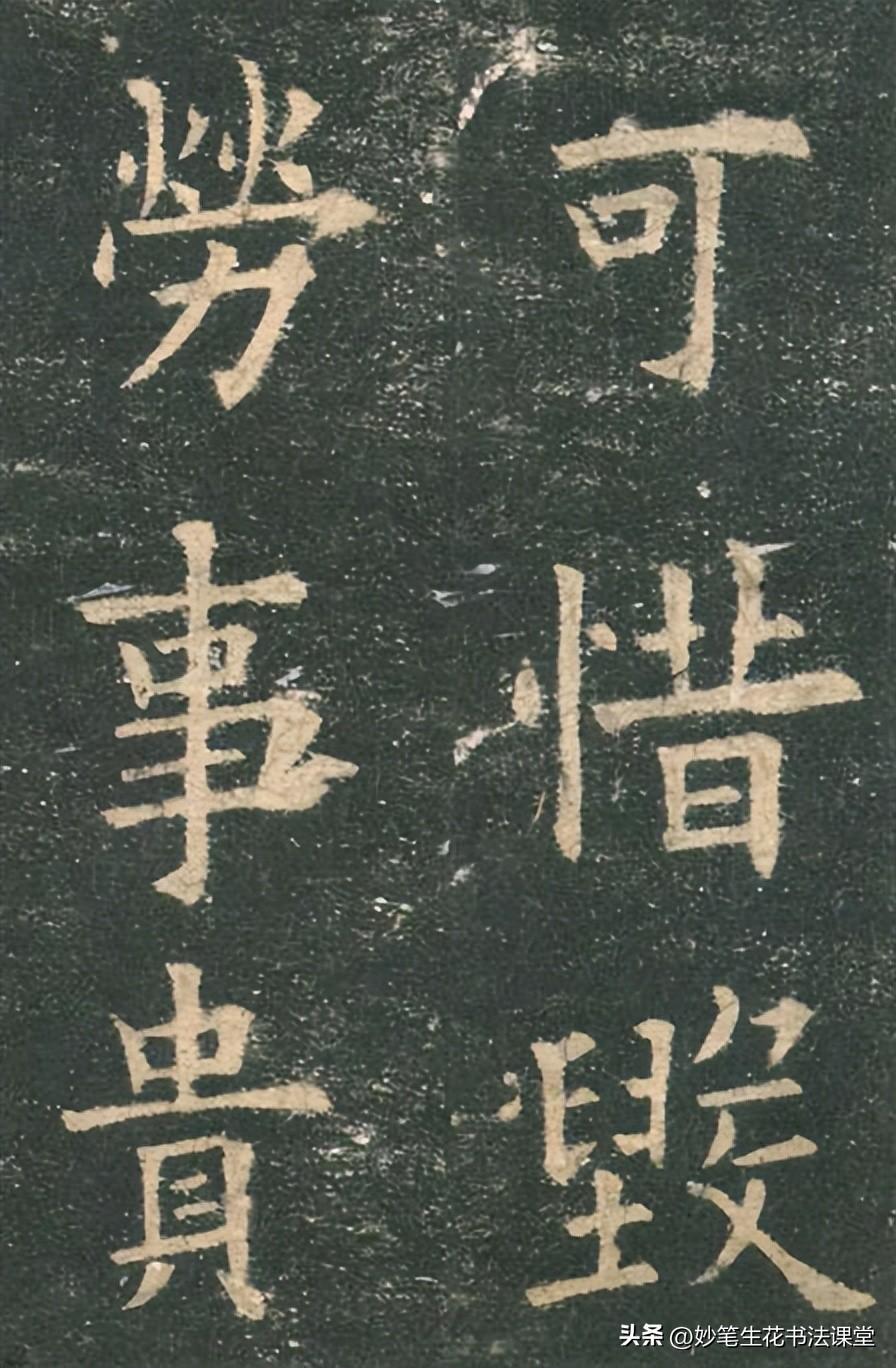 可惜毀
勞事貴
头条 @妙笔生花书法课堂